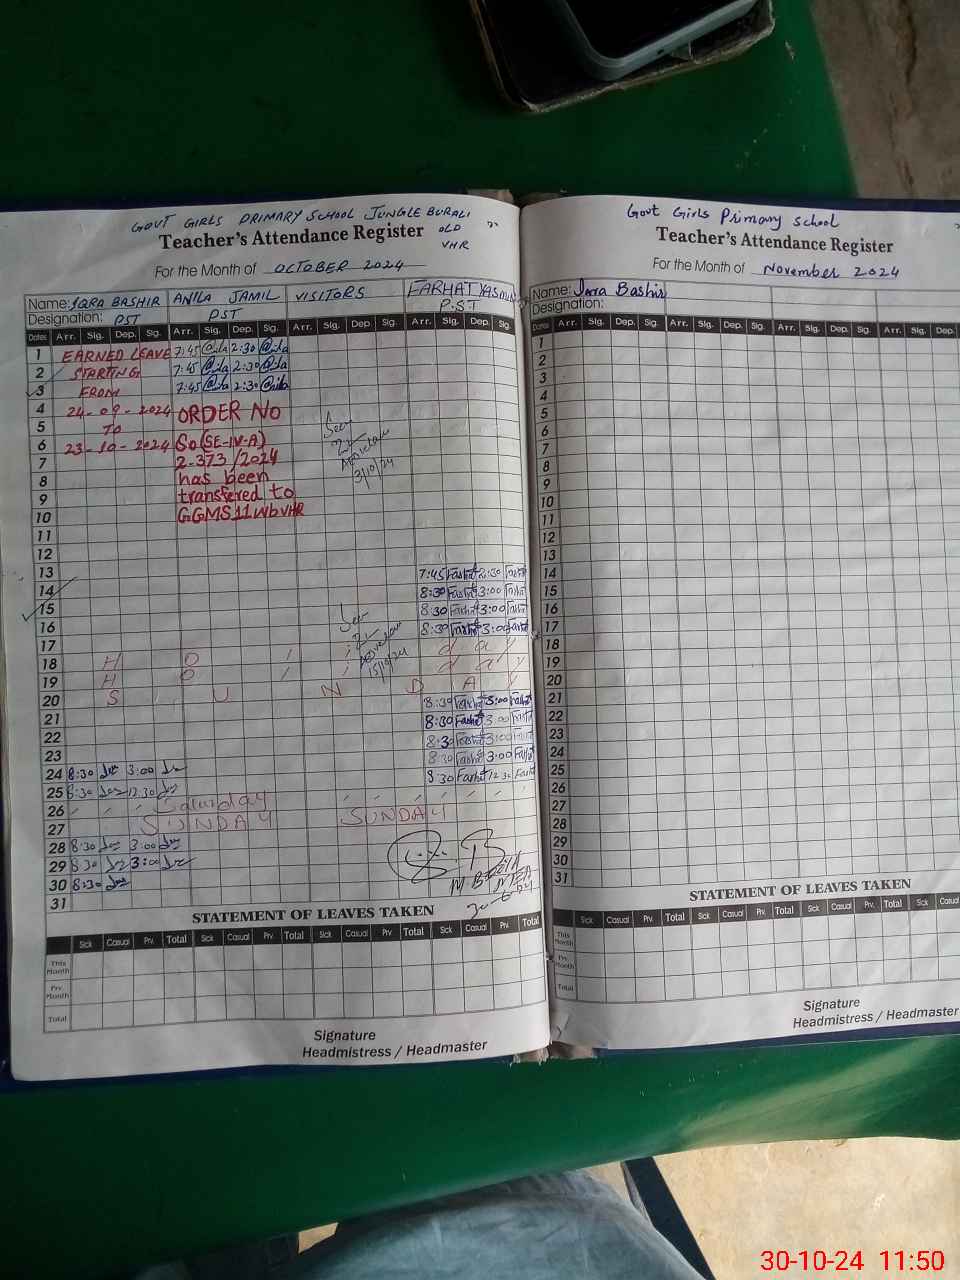 GOVT GIRLS PRIMARY SCHOOL JUNGLE BURALI
OLD
VHR
Teacher's Attendance Register
For the Month of OCTOBER 2024
Name: IQRA BASHIR ANILA JAMIL VISITORS FARHAT YASMIN
Designation: PST PST P.ST
Dates Arr. Sig. Dep. Sig. Arr. Sig. Dep. Sig. Arr. Sig. Dep. Sig. Arr. Sig. Dep. Sig.
1 EARNED LEAVE 7:45 2:30
2 STARTING 7:45 2:30
3 FROM 7:45 2:30
4 24-09-2024 ORDER NO
5 TO
6 23-10-2024 So (SE-IV-A)
7 2-373/2024
8 has been 3/10/24
9 transfered to
10 GGMS 11 WB VHR
11
12
13 7:45 Farhat 2:30 Farhat
14 8:30 Farhat 3:00 Farhat
15 8:30 Farhat 3:00 Farhat
16 8:30 Farhat 3:00 Farhat
17
18 H O l i d a y
19 H O l i d a y 15/10/24
20 S U N D A Y
21 8:30 Farhat 3:00 Farhat
22 8:30 Farhat 3:00 Farhat
23 8:30 Farhat 3:00 Farhat
24 8:30 3:00 8:30 Farhat 3:00 Farhat
25 8:30 12:30 8:30 Farhat 12:30 Farhat
26 Saturday
27 SUNDAY SUNDAY
28 8:30 3:00
29 8:30 3:00
30 8:30
31
STATEMENT OF LEAVES TAKEN
Sick Casual Prv. Total Sick Casual Prv. Total Sick Casual Prv. Total Sick Casual Prv. Total
This Month
Prv. Month
Total
Signature
Headmistress / Headmaster
Govt Girls Primary School
Teacher's Attendance Register
For the Month of November 2024
Name: Iqra Bashir
Designation:
Dates Arr. Sig. Dep. Sig. Arr. Sig. Dep. Sig. Arr. Sig. Dep. Sig. Arr. Sig. Dep.
1
2
3
4
5
6
7
8
9
10
11
12
13
14
15
16
17
18
19
20
21
22
23
24
25
26
27
28
29
30
31
STATEMENT OF LEAVES TAKEN
Sick Casual Prv. Total Sick Casual Prv. Total Sick Casual Prv. Total Sick Casual
This Month
Prv. Month
Total
Signature
Headmistress / Headmaster
30-10-24 11:50